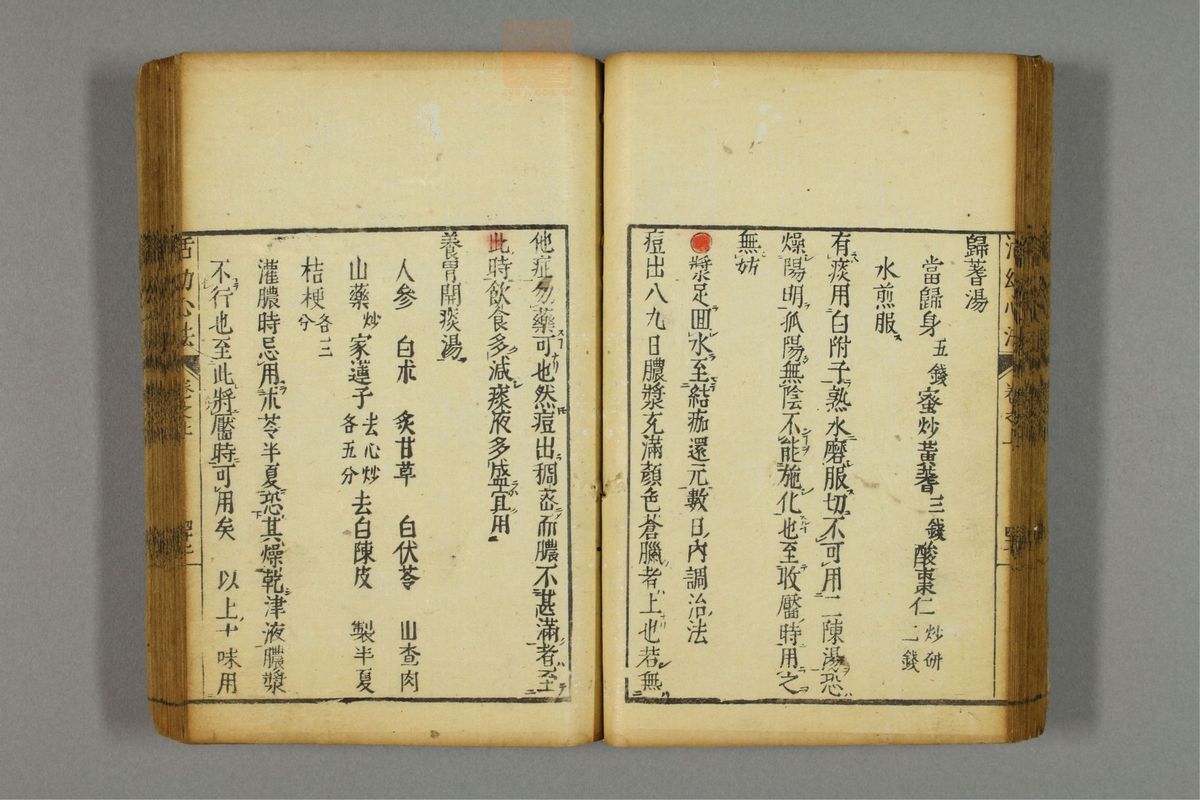 歸蓍湯
當歸身五錢 蜜炒黃蓍三錢 酸棗仁炒研二錢
水煎服
有痰用白附子熟水磨服切不可用二陳湯恐
燥陽明孤陽無陰不能施化也至收靨時用之
無妨
漿足囬水至結痂還元數日內調治法
痘出八九日膿漿充滿顏色蒼臘者上也若無
他症勿藥可也然痘出稠密而膿不甚滿者至
此時飲食多減痰液多盛宜用
養胃開痰湯
人參 白朮 炙甘草 白伏苓 山查肉
山藥炒 家蓮子去心炒各五分 去白陳皮 製半夏
桔梗各三分
灌膿時忌用朮苓半夏恐其燥乾津液膿漿
不行也至此將靨時可用矣 以上十味用
活幼心法